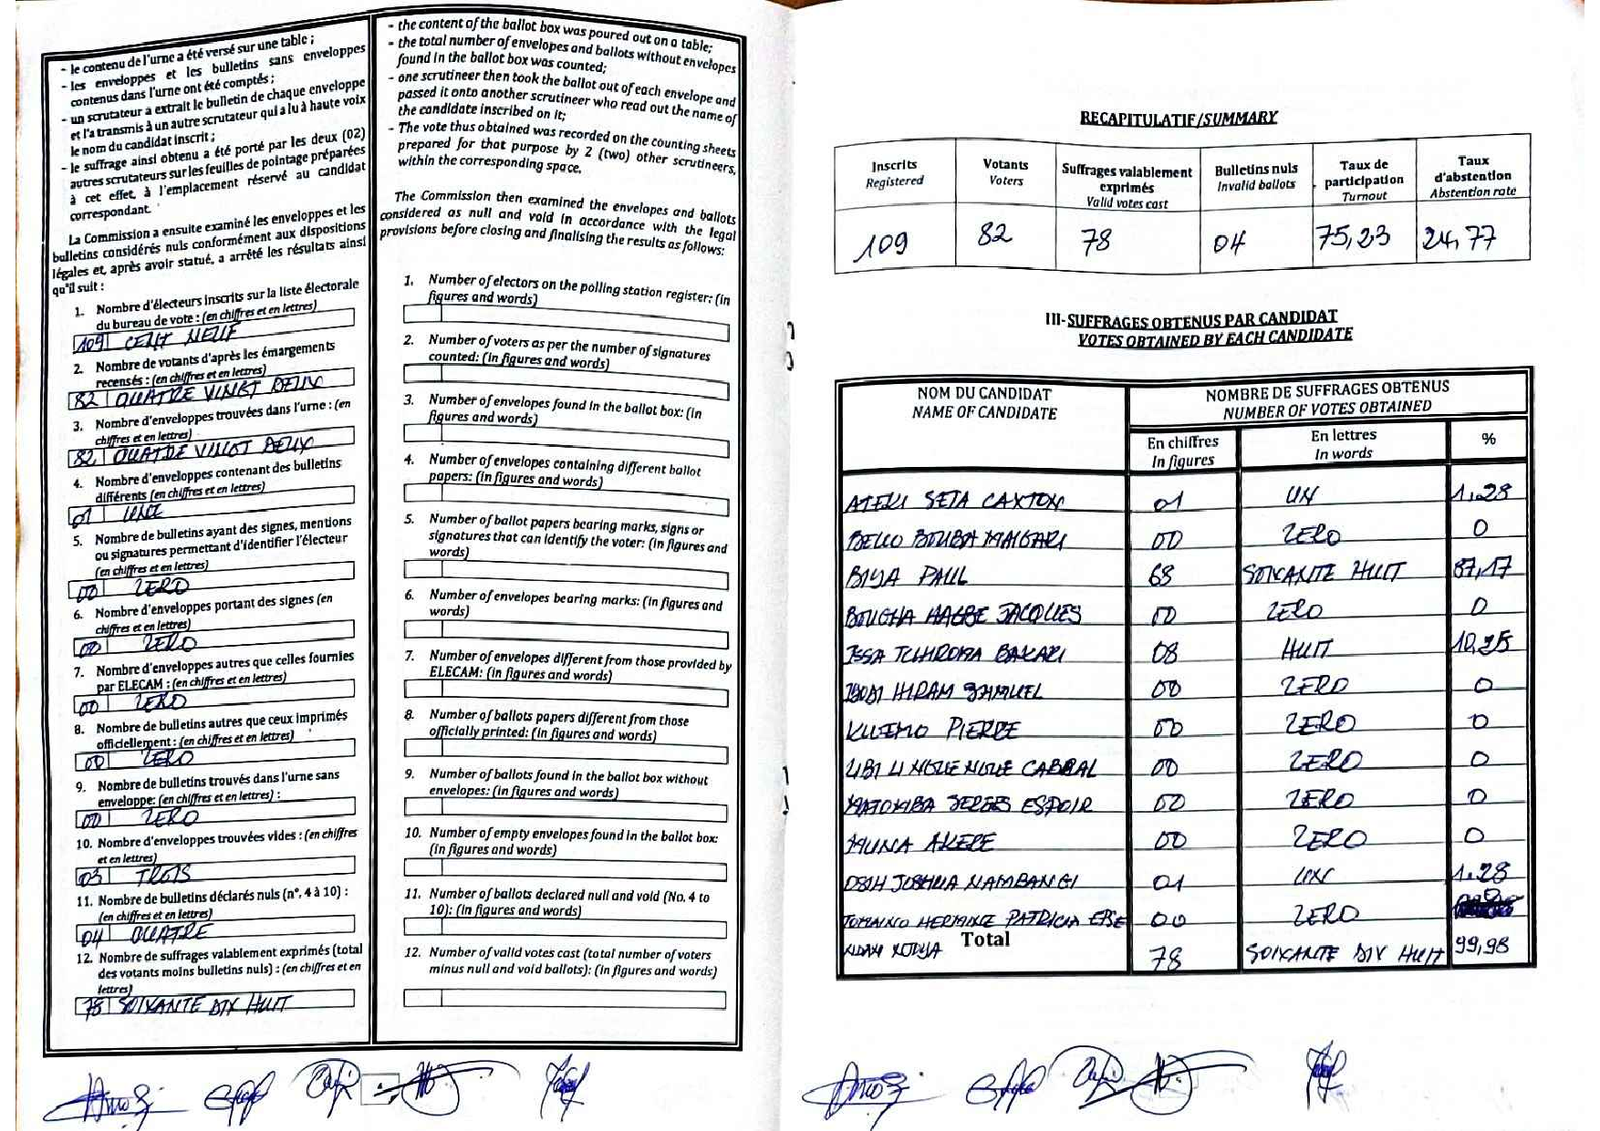 - le contenu de l'urne a été versé sur une table ;
- les enveloppes et les bulletins sans enveloppes
contenus dans l'urne ont été comptés ;
- un scrutateur a extrait le bulletin de chaque enveloppe
et l'a transmis à un autre scrutateur qui a lu à haute voix
le nom du candidat inscrit ;
- le suffrage ainsi obtenu a été porté par les deux (02)
autres scrutateurs sur les feuilles de pointage préparées
à cet effet, à l'emplacement réservé au candidat
correspondant.
La Commission a ensuite examiné les enveloppes et les
bulletins considérés nuls conformément aux dispositions
légales et, après avoir statué, a arrêté les résultats ainsi
qu'il suit :
1. Nombre d'électeurs inscrits sur la liste électorale
du bureau de vote : (en chiffres et en lettres)
109 CENT NEUF
2. Nombre de votants d'après les émargements
recensés : (en chiffres et en lettres)
82 QUATRE VINGT DEUX
3. Nombre d'enveloppes trouvées dans l'urne : (en
chiffres et en lettres)
82 QUATRE VINGT DEUX
4. Nombre d'enveloppes contenant des bulletins
différents (en chiffres et en lettres)
01 UNE
5. Nombre de bulletins ayant des signes, mentions
ou signatures permettant d'identifier l'électeur
(en chiffres et en lettres)
00 ZERO
6. Nombre d'enveloppes portant des signes (en
chiffres et en lettres)
00 ZERO
7. Nombre d'enveloppes autres que celles fournies
par ELECAM : (en chiffres et en lettres)
00 ZERO
8. Nombre de bulletins autres que ceux imprimés
officiellement : (en chiffres et en lettres)
00 ZERO
9. Nombre de bulletins trouvés dans l'urne sans
enveloppe: (en chiffres et en lettres) :
00 ZERO
10. Nombre d'enveloppes trouvées vides : (en chiffres
et en lettres)
03 TROIS
11. Nombre de bulletins déclarés nuls (n°. 4 à 10) :
(en chiffres et en lettres)
04 QUATRE
12. Nombre de suffrages valablement exprimés (total
des votants moins bulletins nuls) : (en chiffres et en
lettres)
78 SOIXANTE DIX HUIT
- the content of the ballot box was poured out on a table;
- the total number of envelopes and ballots without envelopes
found in the ballot box was counted;
- one scrutineer then took the ballot out of each envelope and
passed it onto another scrutineer who read out the name of
the candidate inscribed on it;
- The vote thus obtained was recorded on the counting sheets
prepared for that purpose by 2 (two) other scrutineers,
within the corresponding space.
The Commission then examined the envelopes and ballots
considered as null and void in accordance with the legal
provisions before closing and finalising the results as follows:
1. Number of electors on the polling station register: (in
figures and words)
2. Number of voters as per the number of signatures
counted: (in figures and words)
3. Number of envelopes found in the ballot box: (in
figures and words)
4. Number of envelopes containing different ballot
papers: (in figures and words)
5. Number of ballot papers bearing marks, signs or
signatures that can identify the voter: (in figures and
words)
6. Number of envelopes bearing marks: (in figures and
words)
7. Number of envelopes different from those provided by
ELECAM: (in figures and words)
8. Number of ballots papers different from those
officially printed: (in figures and words)
9. Number of ballots found in the ballot box without
envelopes: (in figures and words)
10. Number of empty envelopes found in the ballot box:
(in figures and words)
11. Number of ballots declared null and void (No. 4 to
10): (in figures and words)
12. Number of valid votes cast (total number of voters
minus null and void ballots): (in figures and words)
RECAPITULATIF/SUMMARY
Inscrits Registered
Votants Voters
Suffrages valablement exprimés Valid votes cast
Bulletins nuls Invalid ballots
Taux de participation Turnout
Taux d'abstention Abstention rate
109 82 78 04 75,23 24,77
III-SUFFRAGES OBTENUS PAR CANDIDAT
VOTES OBTAINED BY EACH CANDIDATE
NOM DU CANDIDAT
NAME OF CANDIDATE
NOMBRE DE SUFFRAGES OBTENUS
NUMBER OF VOTES OBTAINED
En chiffres In figures
En lettres In words
%
ATEKI SETA CAXTON 01 UN 1,28
BELLO BOUBA MAIGARI 00 ZERO 0
BIYA PAUL 68 SOIXANTE HUIT 87,17
BOUGHA HAGBE JACQUES 00 ZERO 0
ISSA TCHIROMA BAKARI 08 HUIT 10,25
IYODI HIRAM SAMUEL 00 ZERO 0
KUEMO PIERRE 00 ZERO 0
LIBI LI NGUE NGUE CABRAL 00 ZERO 0
MATOMBA SERGES ESPOIR 00 ZERO 0
MUNA AKERE 00 ZERO 0
OSIH JOSHUA NAMBANGI 01 UN 1,28
TOMAINO HERMINE PATRICIA EPSE 00 ZERO 0
NDAM NJOYA Total 78 SOIXANTE DIX HUIT 99,98